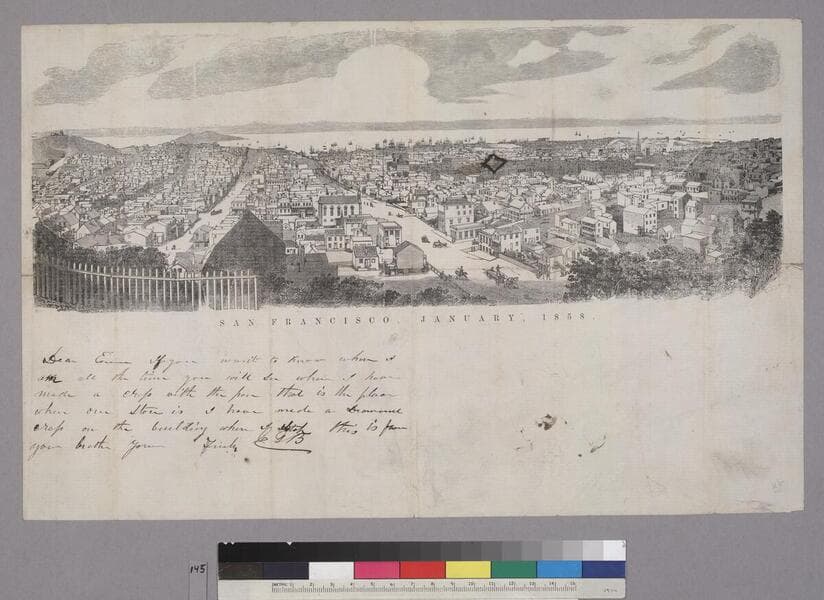 SAN FRANCISCO, JANUARY, 1858.
Dear if you want to know where I
am all the time you will see where I have
made a cross with the pen that is the place
where our store is I have made a
cross on the building where I this is from
your brother Yours Truly
145